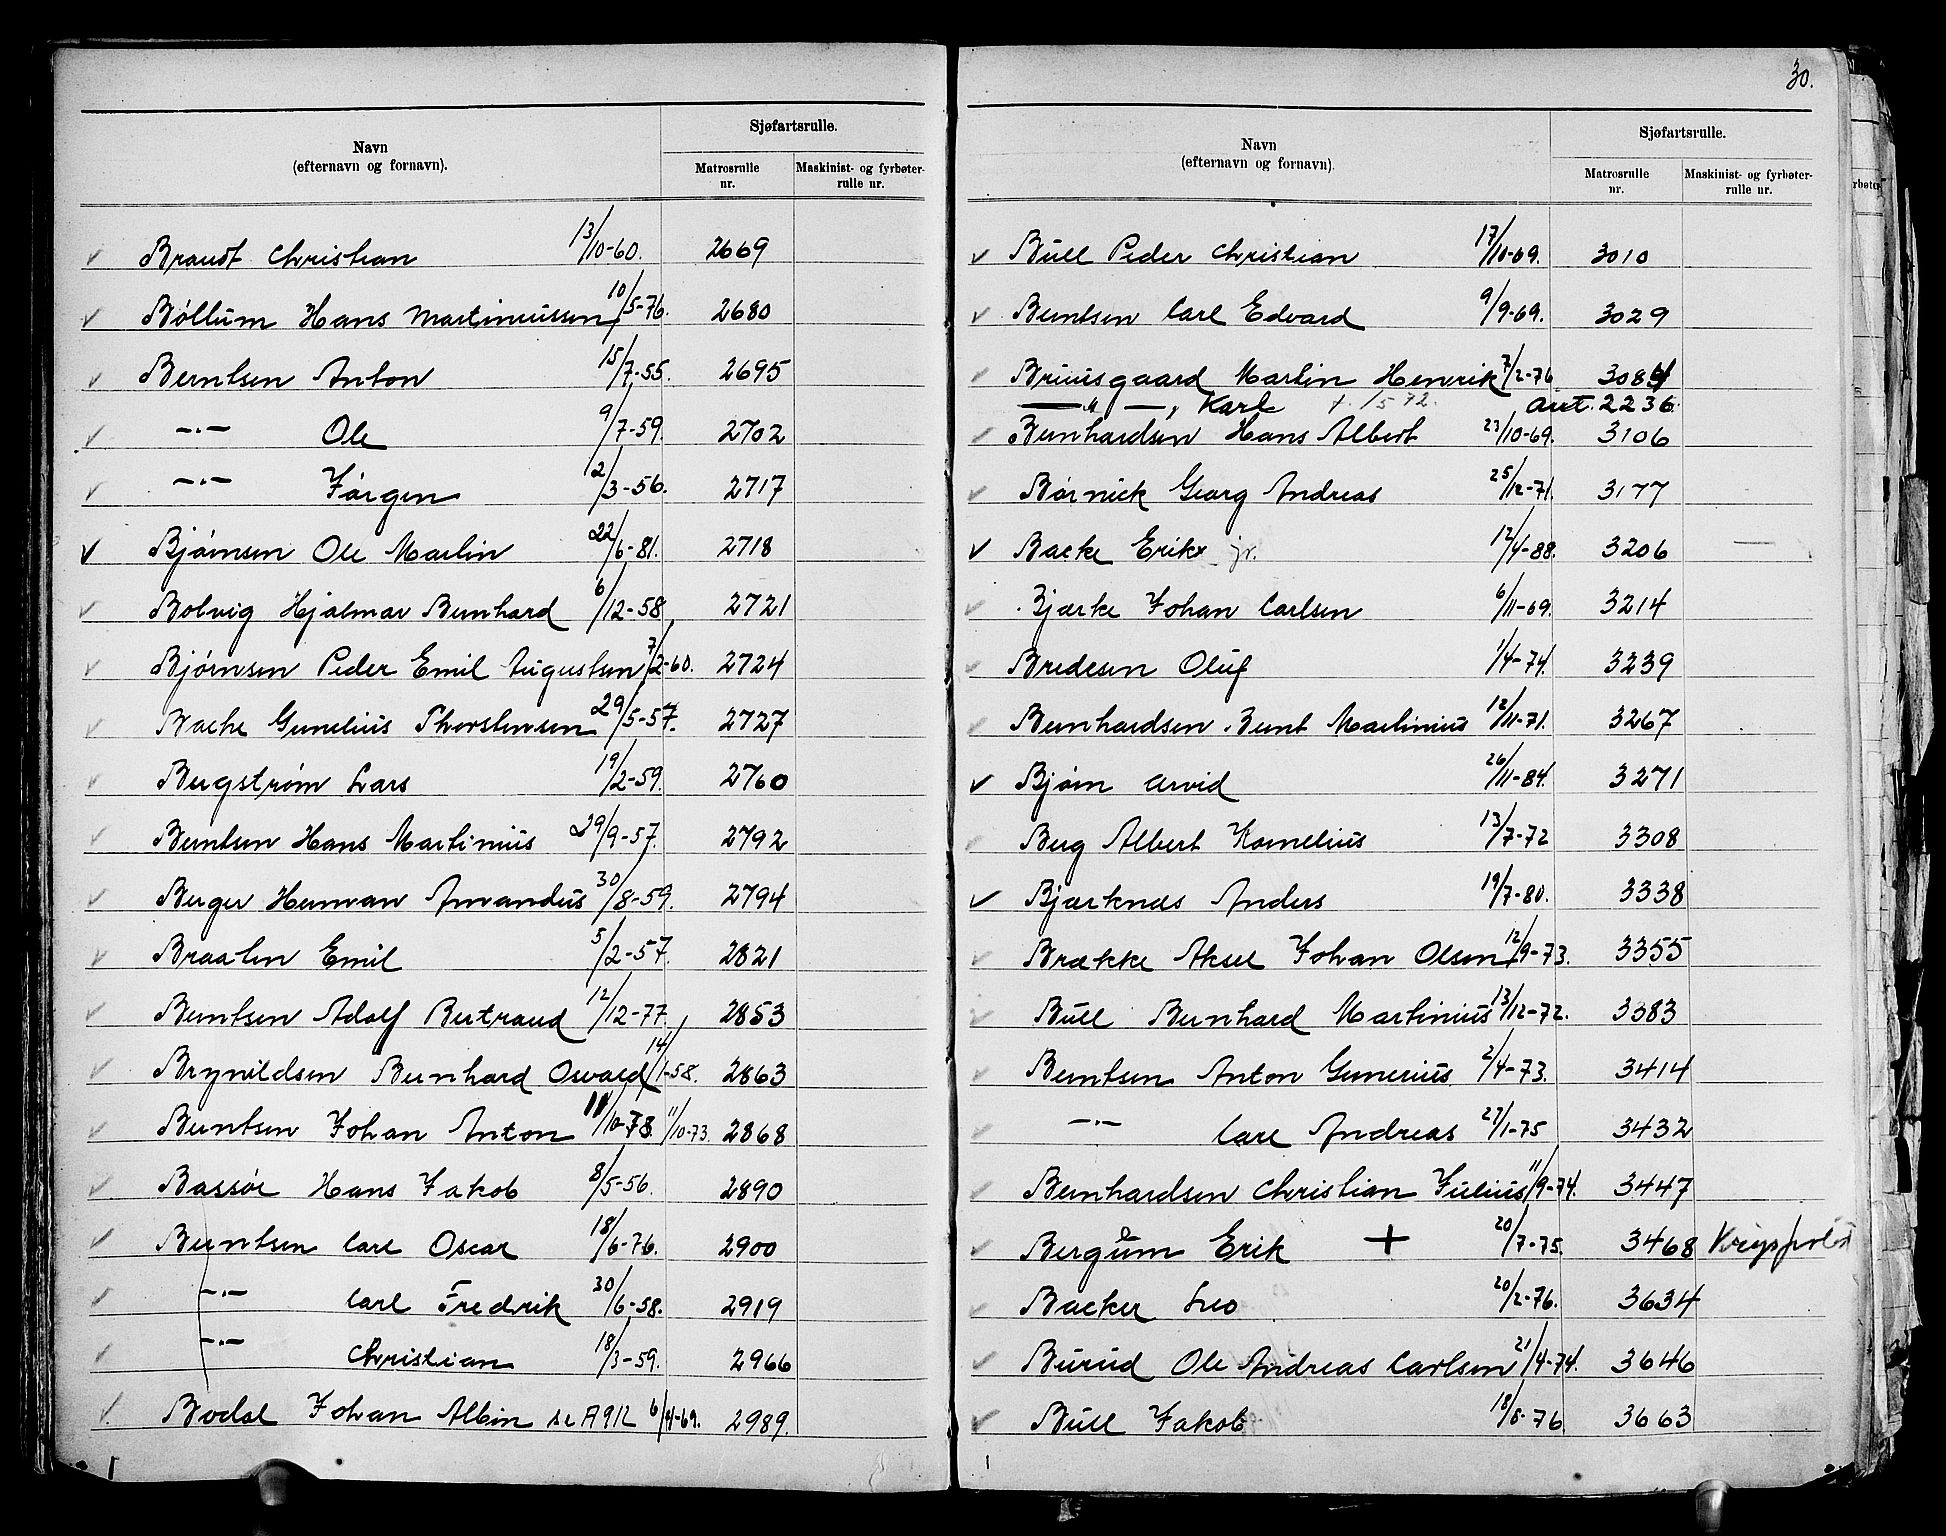 30.
Navn
(efternavn og fornavn).
Sjøfartsrulle.
Matrosrulle nr.
Maskinist- og fyrbøter-rulle nr.
Brandt Christian 13/10-60. 2669
Bøllum Hans Martiniussen 10/5-76. 2680
Berntsen Anton 15/7-55. 2695
—"— Ole 9/7-59. 2702
—"— Jørgen 2/3-56. 2717
Bjørnsen Ole Martin 22/6-81. 2718
Bolvig Hjalmar Bernhard 6/12-58 2721
Bjørnsen Peder Emil Augustsen 7/2-60. 2724
Bache Gunelius Thorstensen 29/5-57. 2727
Bergstrøm Lars 19/2-59. 2760
Berntsen Hans Martinius 29/9-57. 2792
Berger Herman Amandus 30/8-59. 2794
Braaten Emil 5/2-57. 2821
Berntsen Adolf Bertrand 12/12-77. 2853
Brynildsen Bernhard Osvald 14/1-58. 2863
Berntsen Johan Anton 11/10-78. 11/10-73. 2868
Bassøe Hans Jakob 8/5-56. 2890
Berntsen Carl Oscar 18/6-76. 2900
—"— Carl Fredrik 30/6-58. 2919
—"— Christian 18/3-59. 2966
Bodal Johan Albin se A912 6/4-69. 2989.
Navn
(efternavn og fornavn).
Sjøfartsrulle.
Matrosrulle nr.
Maskinist- og fyrbøter-rulle nr.
Bull Peder Christian 17/10-69. 3010
Berntsen Carl Edvard 9/9-69. 3029
Bruusgaard Martin Henrik 7/2-76 3084
—"— Karl 72. ant. 2236.
Bernhardsen Hans Albert 23/10-69. 3106
Børnick Georg Andreas 25/12-71. 3177
Backe Erik jr. 12/4-88. 3206 —
Bjerke Johan Carlsen 6/11-69. 3214
Bredesen Oluf 1/4-74. 3239
Bernhardsen Bernt Martinius 12/11-71. 3267
Bjørn Arvid 26/11-84. 3271
Berg Albert Kornelius 13/7-72 3308
Bjerknes Anders 19/7-80. 3338
Brække Aksel Johan Olsen 12/9-73. 3355
Bull Bernhard Martinius 13/12-72. 3383
Berntsen Anton Gunerius 2/4-73. 3414
—"— Carl Andreas 27/1-75 3432
Bernhardsen Christian Julius 11/9-74. 3447
Bergum Erik + 20/7-75. 3468
Backer Leo 20/2-76. 3634
Burud Ole Andreas Carlsen 21/4-74. 3646
Bull Jakob 18/5-76 3663